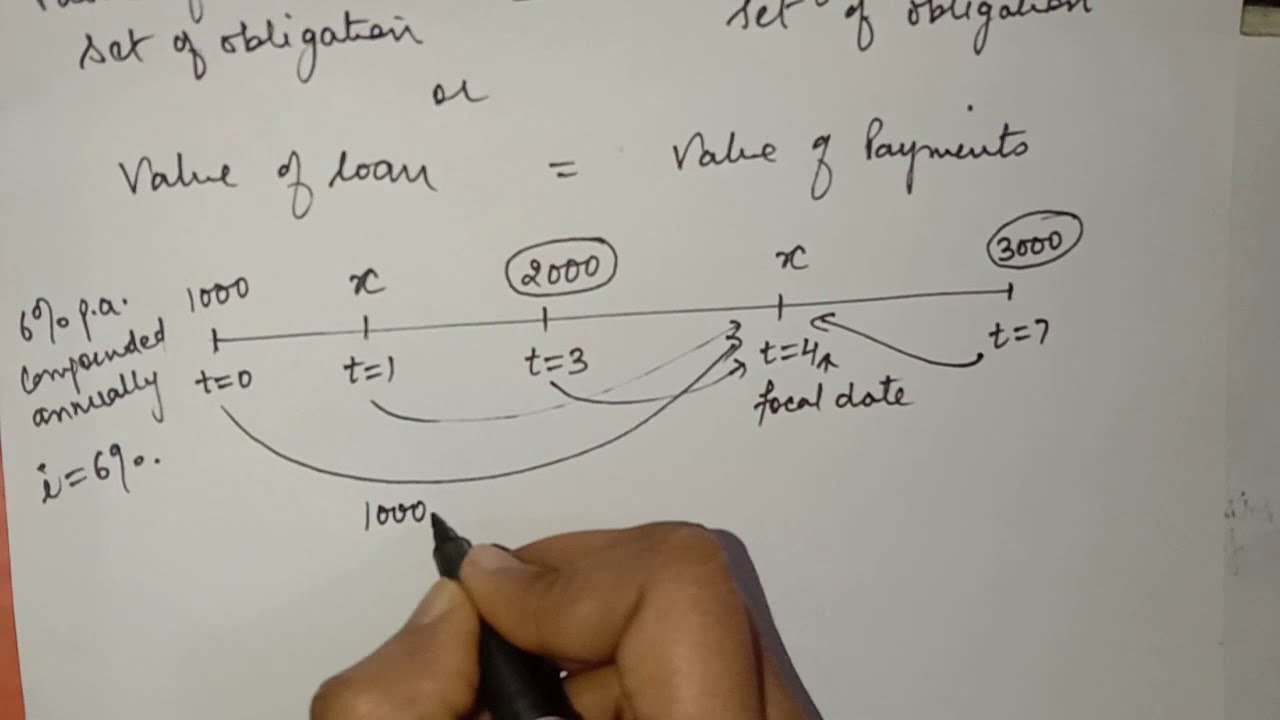 set of obligation
set of obligation
or
Value of loan = Value of Payments
1000 x 2000 x 3000
6% p.a.
compounded
annually
t=0 t=1 t=3 t=4 t=7
focal date
i=6%.
1000